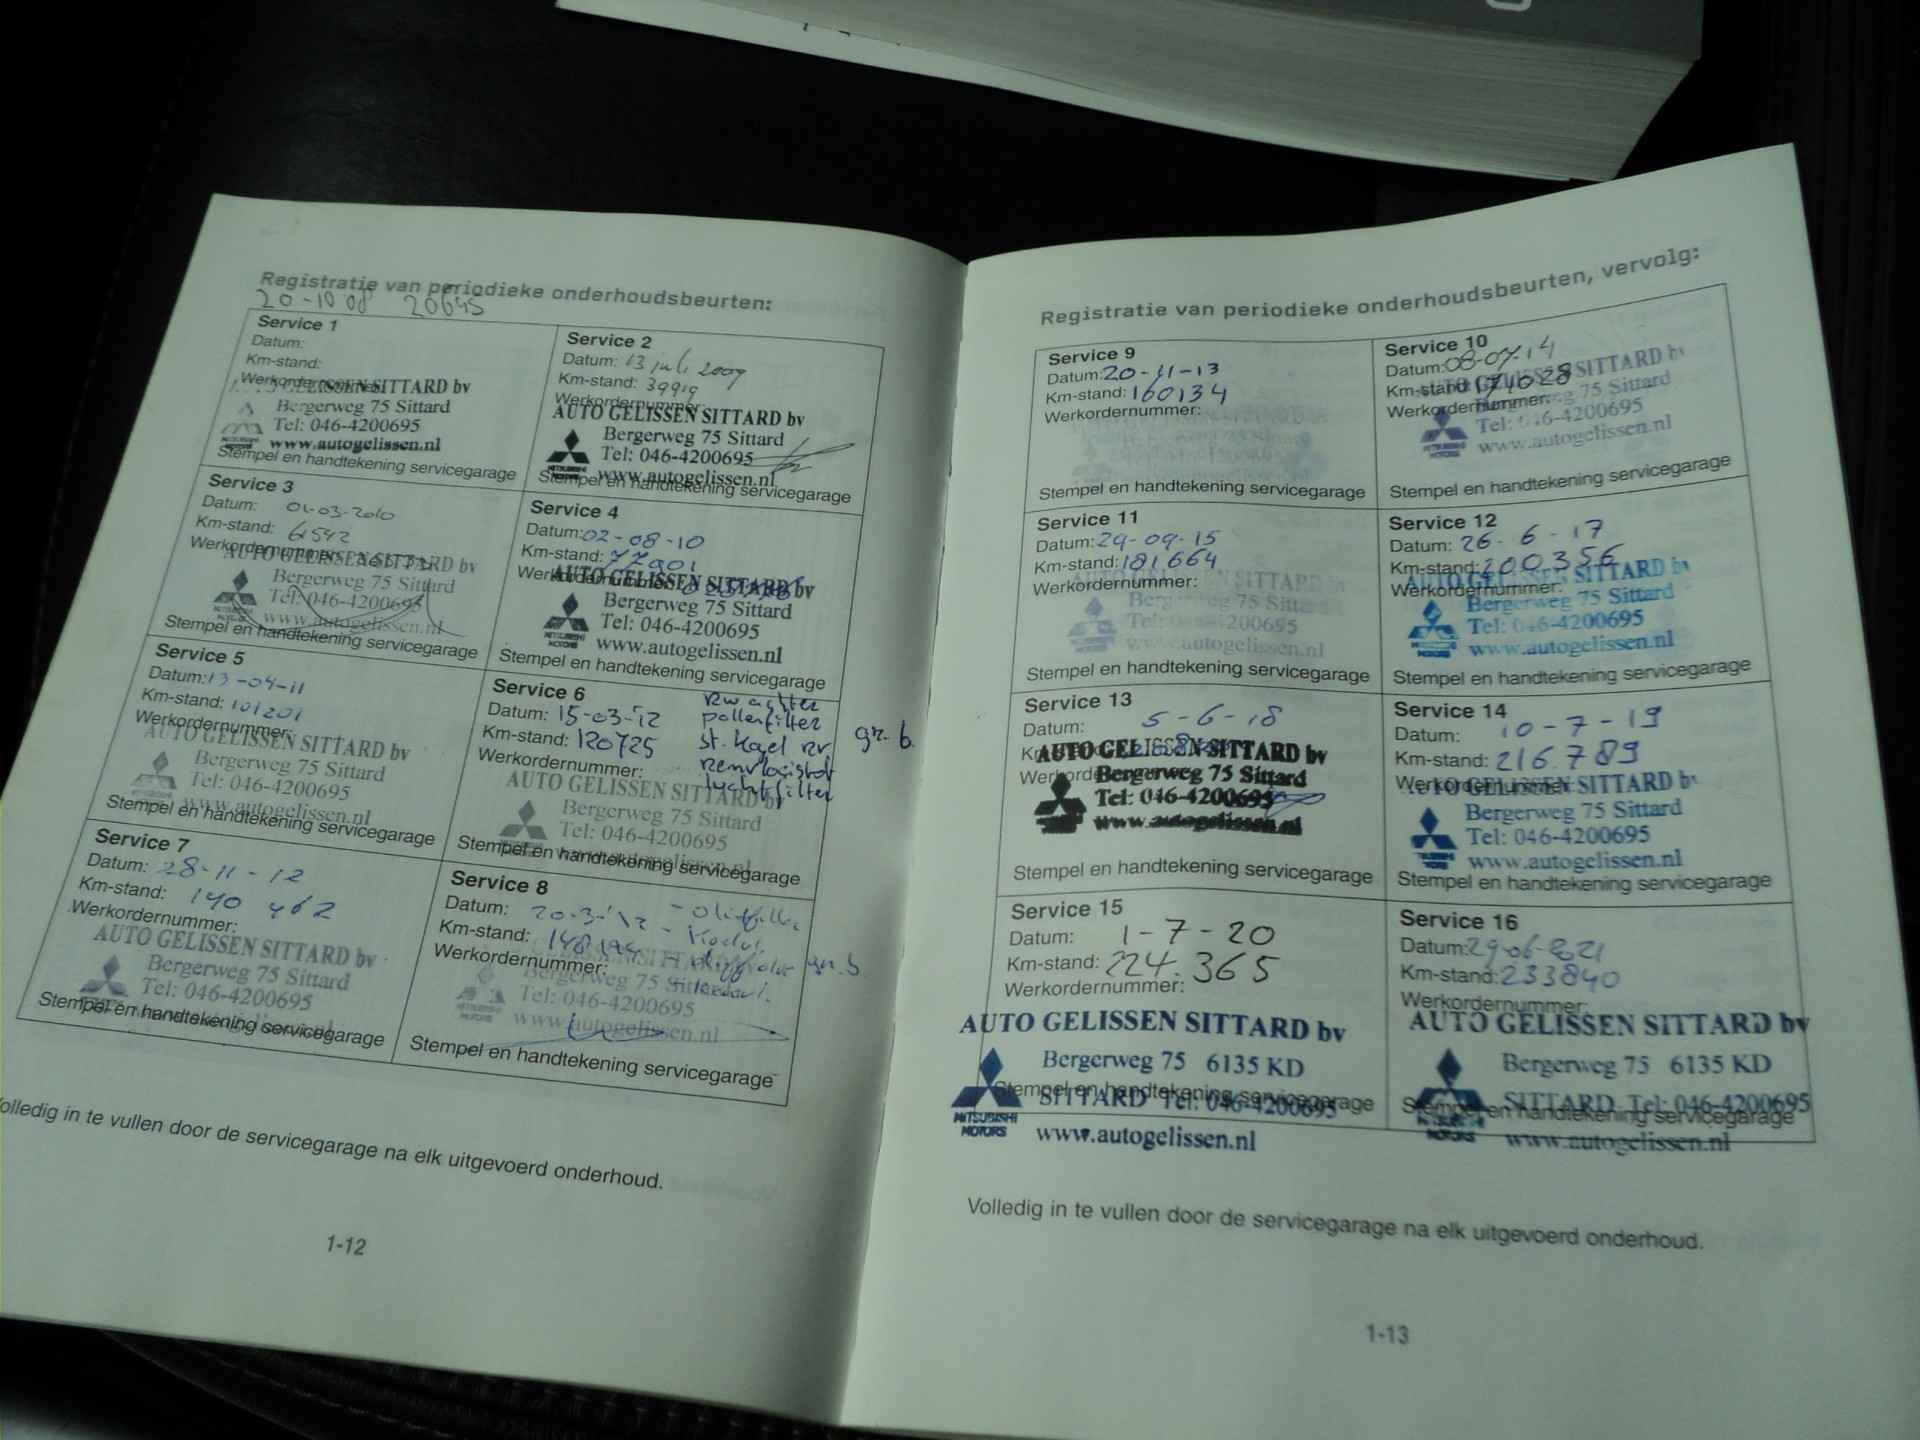 Registratie van periodieke onderhoudsbeurten:
20-10 08 20645
Service 1
Datum:
Km-stand:
Werkordernummer:
GELISSEN SITTARD bv
Bergerweg 75 Sittard
Tel: 046-4200695
www.autogelissen.nl
Stempel en handtekening servicegarage
Service 2
Datum: 13 juli 2009
Km-stand: 39919
Werkordernummer:
AUTO GELISSEN SITTARD bv
Bergerweg 75 Sittard
Tel: 046-4200695
MITSUBISHI MOTORS
www.autogelissen.nl
Stempel en handtekening servicegarage
Service 3
Datum: 01-03-2010
Km-stand: 61542
Werkordernummer:
AUTO GELISSEN SITTARD bv
Bergerweg 75 Sittard
Tel: 046-4200695
www.autogelissen.nl
Stempel en handtekening servicegarage
Service 4
Datum: 02-08-10
Km-stand: 77901
Werkordernummer:
AUTO GELISSEN SITTARD bv
Bergerweg 75 Sittard
Tel: 046-4200695
MITSUBISHI MOTORS
www.autogelissen.nl
Stempel en handtekening servicegarage
Service 5
Datum: 13-04-11
Km-stand: 101201
Werkordernummer:
AUTO GELISSEN SITTARD bv
Bergerweg 75 Sittard
Tel: 046-4200695
www.autogelissen.nl
Stempel en handtekening servicegarage
Service 6
Datum: 15-03-'12
Km-stand: 120725
Werkordernummer:
pollenfilter
st. kogel rv. gr. b.
remvloeistof
luchtfilter
AUTO GELISSEN SITTARD bv
Bergerweg 75 Sittard
Tel: 046-4200695
www.autogelissen.nl
Stempel en handtekening servicegarage
Service 7
Datum: 28-11-12
Km-stand: 140 462
Werkordernummer:
AUTO GELISSEN SITTARD bv
Bergerweg 75 Sittard
Tel: 046-4200695
www.autogelissen.nl
Stempel en handtekening servicegarage
Service 8
Datum:
Km-stand:
Werkordernummer:
Bergerweg 75 Sittard
Tel: 046-4200695
www.autogelissen.nl
Stempel en handtekening servicegarage
Volledig in te vullen door de servicegarage na elk uitgevoerd onderhoud.
1-12
Registratie van periodieke onderhoudsbeurten, vervolg:
Service 9
Datum: 20-11-13
Km-stand: 160134
Werkordernummer:
Stempel en handtekening servicegarage
Service 10
Datum: 08-07-14
Km-stand: 171028
Werkordernummer:
AUTO GELISSEN SITTARD bv
Bergerweg 75 Sittard
Tel: 046-4200695
MITSUBISHI MOTORS
www.autogelissen.nl
Stempel en handtekening servicegarage
Service 11
Datum: 29-09-15
Km-stand: 181664
Werkordernummer:
AUTO GELISSEN SITTARD
Bergerweg 75 Sittard
Tel: 046-4200695
www.autogelissen.nl
Stempel en handtekening servicegarage
Service 12
Datum: 26-6-17
Km-stand: 200356
Werkordernummer:
AUTO GELISSEN SITTARD bv
Bergerweg 75 Sittard
Tel: 046-4200695
MOTORS
www.autogelissen.nl
Stempel en handtekening servicegarage
Service 13
Datum: 5-6-18
AUTO GELISSEN SITTARD bv
Bergerweg 75 Sittard
Tel: 046-4200695
www.autogelissen.nl
Stempel en handtekening servicegarage
Service 14
Datum: 10-7-19
Km-stand: 216.789
Werkordernummer:
AUTO GELISSEN SITTARD bv
Bergerweg 75 Sittard
Tel: 046-4200695
www.autogelissen.nl
Stempel en handtekening servicegarage
Service 15
Datum: 1-7-20
Km-stand: 224.365
Werkordernummer:
AUTO GELISSEN SITTARD bv
Bergerweg 75 6135 KD
Stempel en handtekening servicegarage
SITTARD Tel: 046-4200695
MITSUBISHI MOTORS
www.autogelissen.nl
Service 16
Datum: 29-06-2021
Km-stand: 233840
Werkordernummer:
AUTO GELISSEN SITTARD bv
Bergerweg 75 6135 KD
SITTARD Tel: 046-4200695
Stempel en handtekening servicegarage
www.autogelissen.nl
Volledig in te vullen door de servicegarage na elk uitgevoerd onderhoud.
1-13